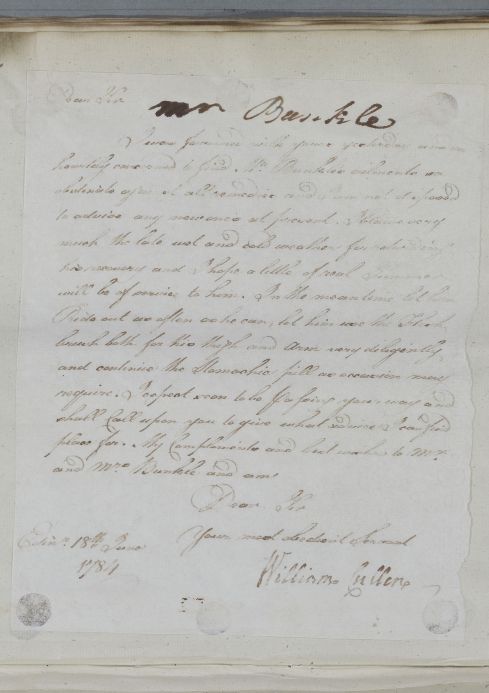 Dear Sir
Mr Bunkle
I was favoured with yours yesterday and am
heartily concerned to find Mr. Bunkle's ailments so
obstinate against all remedies and I am not disposed
to advise any new ones at present. I blame very
much the late wet and cold weather for retarding
his recovery and I hope a little of real Summer
will be of service to him. In the meantime let him
Ride out as often as he can, let him use the Flesh
brush both for his thigh and Arm very diligently
and continue the Stomachic pill as occasion may
require. I expect soon to be passing your way and
shall Call upon you to give what advice I can find
place for. My Complements and best wishes to Mr.
and Mrs Bunkle and am
Dear Sir
Your most obedient Servant
Edinr. 18th June
1784
William Cullen